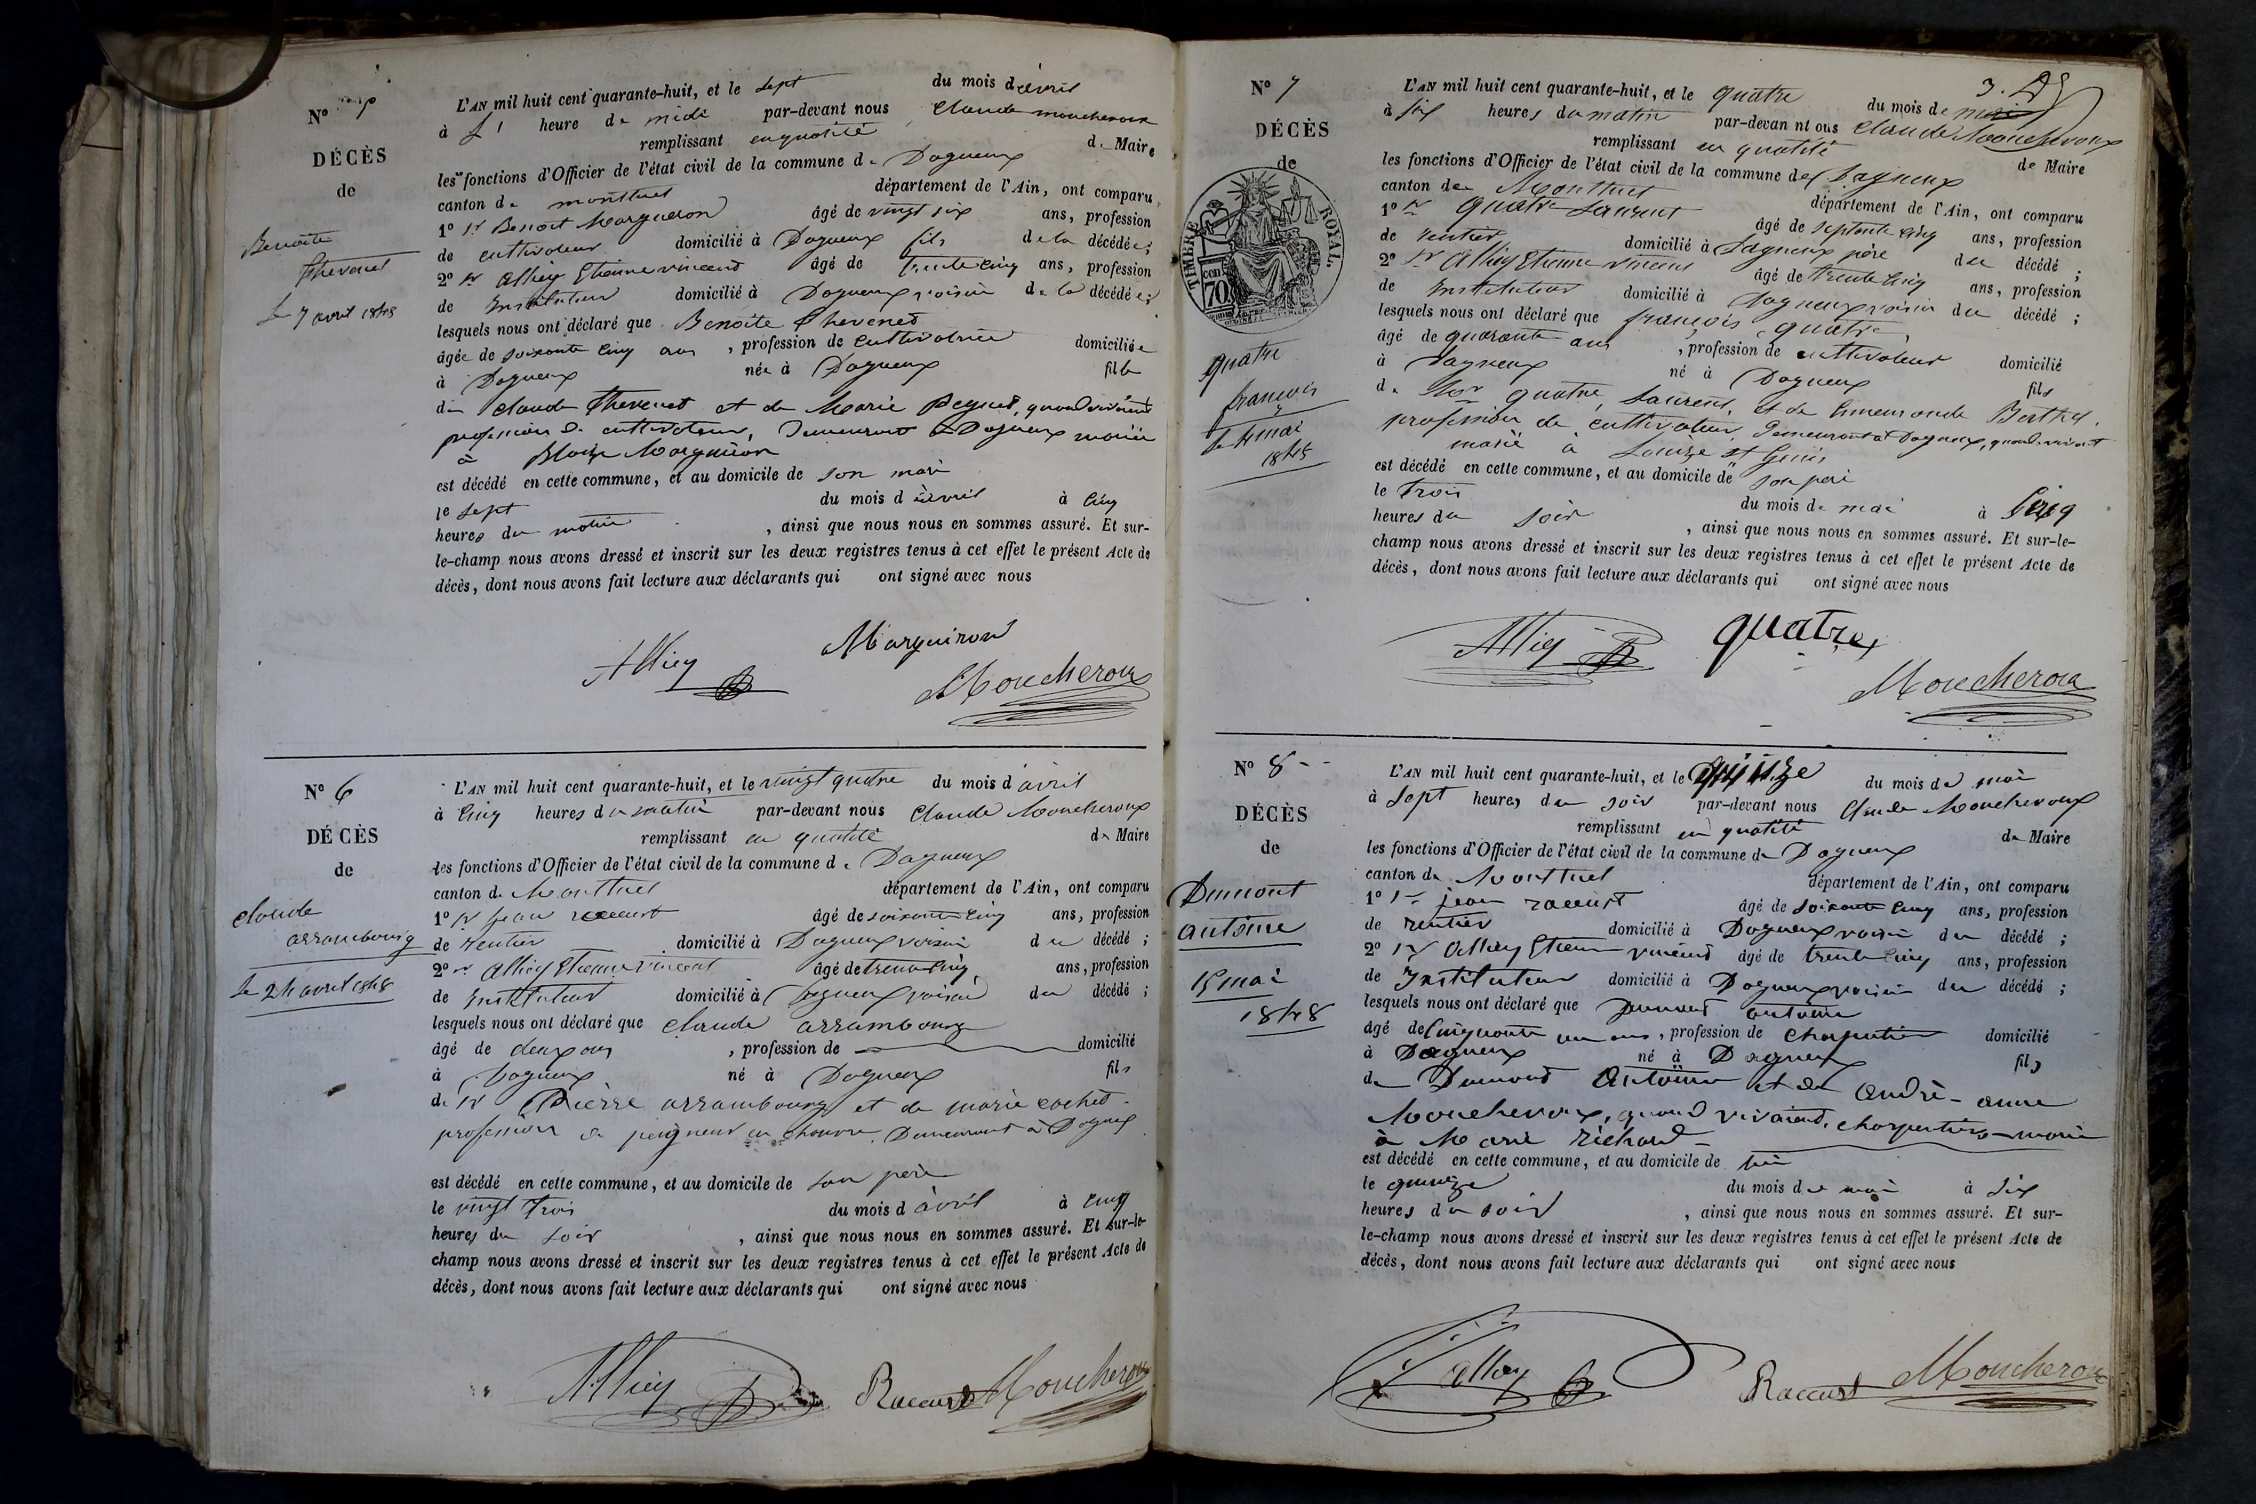 N°
DÉCÈS
de
Benoite
Thevenet
le 7 avril 1848
L'AN mil huit cent quarante-huit, et le sept du mois d'avril
à heure de midi par-devant nous Claude Moucheroux
remplissant en qualité de Maire
les fonctions d'Officier de l'état civil de la commune de Dagneux
canton de montluel département de l'Ain, ont comparu
1° Sr Benoit Marguiron âgé de vingt six ans, profession
de cultivateur domicilié à Dagneux fils de la décédée;
2° Sr Alliey Etienne vincent âgé de trente cinq ans, profession
de Instituteur domicilié à Dagneux voisin de la décédée;
lesquels nous ont déclaré que Benoite Thevenet
âgée de soixante cinq ans, profession de cultivatrice domiciliée
à Dagneux née à Dagneux fille
de Claude Thevenet et de Marie Peynet, quand vivaient
profession de cultivateur, Demeurant à Dagneux mariée
à Marguiron
est décédé en cette commune, et au domicile de son mari
le sept du mois d'avril à cinq
heures du matin, ainsi que nous nous en sommes assuré. Et sur-
le-champ nous avons dressé et inscrit sur les deux registres tenus à cet effet le présent Acte de
décès, dont nous avons fait lecture aux déclarants qui ont signé avec nous
Alliey Marguiron
Moucheroux
N° 6
DÉCÈS
de
Claude
arrambourg
le 24 avril 1848
L'AN mil huit cent quarante-huit, et le vingt quatre du mois d'avril
à cinq heures du matin par-devant nous Claude Moucheroux
remplissant en qualité de Maire
les fonctions d'Officier de l'état civil de la commune de Dagneux
canton de Montluel département de l'Ain, ont comparu
1° Sr Jean raccurt âgé de soixante cinq ans, profession
de rentier domicilié à Dagneux voisin du décédé;
2° Sr Alliey Etienne vincent âgé de trente cinq ans, profession
de Instituteur domicilié à Dagneux voisin du décédé;
lesquels nous ont déclaré que Claude arrambourg
âgé de deux ans, profession de domicilié
à Dagneux né à Dagneux fils
de Sr Pierre arrambourg et de marie cochet
profession de peigneur en chanvre, Demeurant à Dagneux
est décédé en cette commune, et au domicile de son père
le vingt trois du mois d'avril à cinq
heures du soir, ainsi que nous nous en sommes assuré. Et sur-le-
champ nous avons dressé et inscrit sur les deux registres tenus à cet effet le présent Acte de
décès, dont nous avons fait lecture aux déclarants qui ont signé avec nous
Alliey Raccurt Moucheroux
N° 7
DÉCÈS
de
TIMBRE ROYAL
70
quatre
françois
le 4 mai
1848
L'AN mil huit cent quarante-huit, et le quatre du mois de mai
à six heures du matin par-devan nt ous Claude Moucheroux
remplissant en qualité de Maire
les fonctions d'Officier de l'état civil de la commune de Dagneux
canton de Montluel département de l'Ain, ont comparu
1° Sr quatre Laurent âgé de septante cinq ans, profession
de rentier domicilié à Dagneux père du décédé;
2° Sr Alliey Etienne vincent âgé de trente cinq ans, profession
de Instituteur domicilié à Dagneux voisin du décédé;
lesquels nous ont déclaré que françois quatre
âgé de quarante ans, profession de cultivateur domicilié
à Dagneux né à Dagneux fils
de quatre Laurent, et de Berthet.
profession de cultivateur, Demeurant à Dagneux, quand vivait
marié à
est décédé en cette commune, et au domicile de son père
le trois du mois de mai à cinq
heures du soir, ainsi que nous nous en sommes assuré. Et sur-le-
champ nous avons dressé et inscrit sur les deux registres tenus à cet effet le présent Acte de
décès, dont nous avons fait lecture aux déclarants qui ont signé avec nous
Alliey quatre
Moucheroux
N° 8
DÉCÈS
de
Dumont
antoine
15 mai
1848
L'AN mil huit cent quarante-huit, et le quinze du mois de mai
à sept heures du soir par-devant nous Claude Moucheroux
remplissant en qualité de Maire
les fonctions d'Officier de l'état civil de la commune de Dagneux
canton de Montluel département de l'Ain, ont comparu
1° Sr jean raccurt âgé de soixante cinq ans, profession
de rentier domicilié à Dagneux voisin du décédé;
2° Sr Alliey Etienne vincent âgé de trente cinq ans, profession
de Instituteur domicilié à Dagneux voisin du décédé;
lesquels nous ont déclaré que Dumont antoine
âgé de cinquante un ans, profession de charpentier domicilié
à Dagneux né à Dagneux fils
de Dumont Antoine et de andré-anne
Moucheroux, quand vivaient, charpentiers marié
à Marie richard
est décédé en cette commune, et au domicile de
le quinze du mois de mai à six
heures du soir, ainsi que nous nous en sommes assuré. Et sur-
le-champ nous avons dressé et inscrit sur les deux registres tenus à cet effet le présent Acte de
décès, dont nous avons fait lecture aux déclarants qui ont signé avec nous
alliey Raccurt Moucheroux